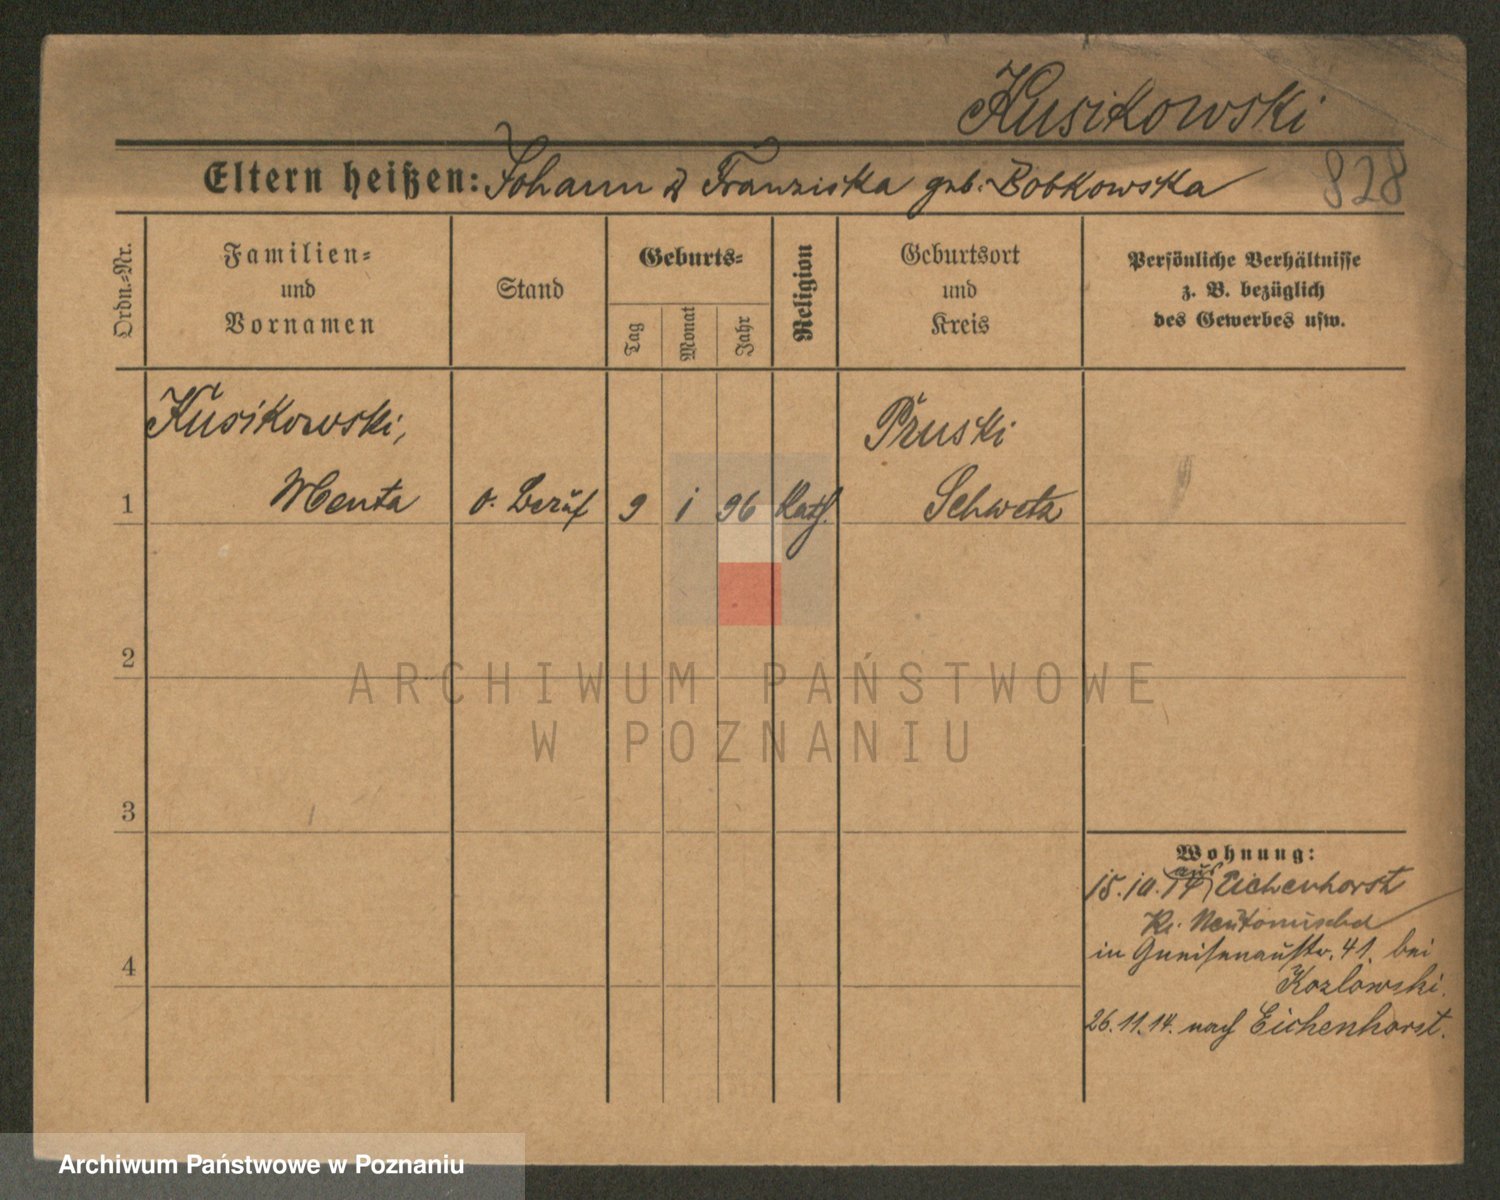 Kusikowski
Eltern heißen: Johann & Franziska geb. Bobkowska
828
Ordn.-Nr.
Familien-
und
Vornamen
Stand
Geburts-
Tag
Monat
Jahr
Religion
Geburtsort
und
Kreis
Persönliche Verhältnisse
z. B. bezüglich
des Gewerbes usw.
Kusikowski,
Pruski
1
Menta
o. Beruf
9
1
96
kath.
Schwetz
2
ARCHIWUM PAŃSTWOWE
W POZNANIU
3
Wohnung:
15.10.14 aus Eichenhorst
Kr. Neutomischel
in Gneisenaustr. 41. bei
Kozlowski.
4
26.11.14. nach Eichenhorst.
Archiwum Państwowe w Poznaniu